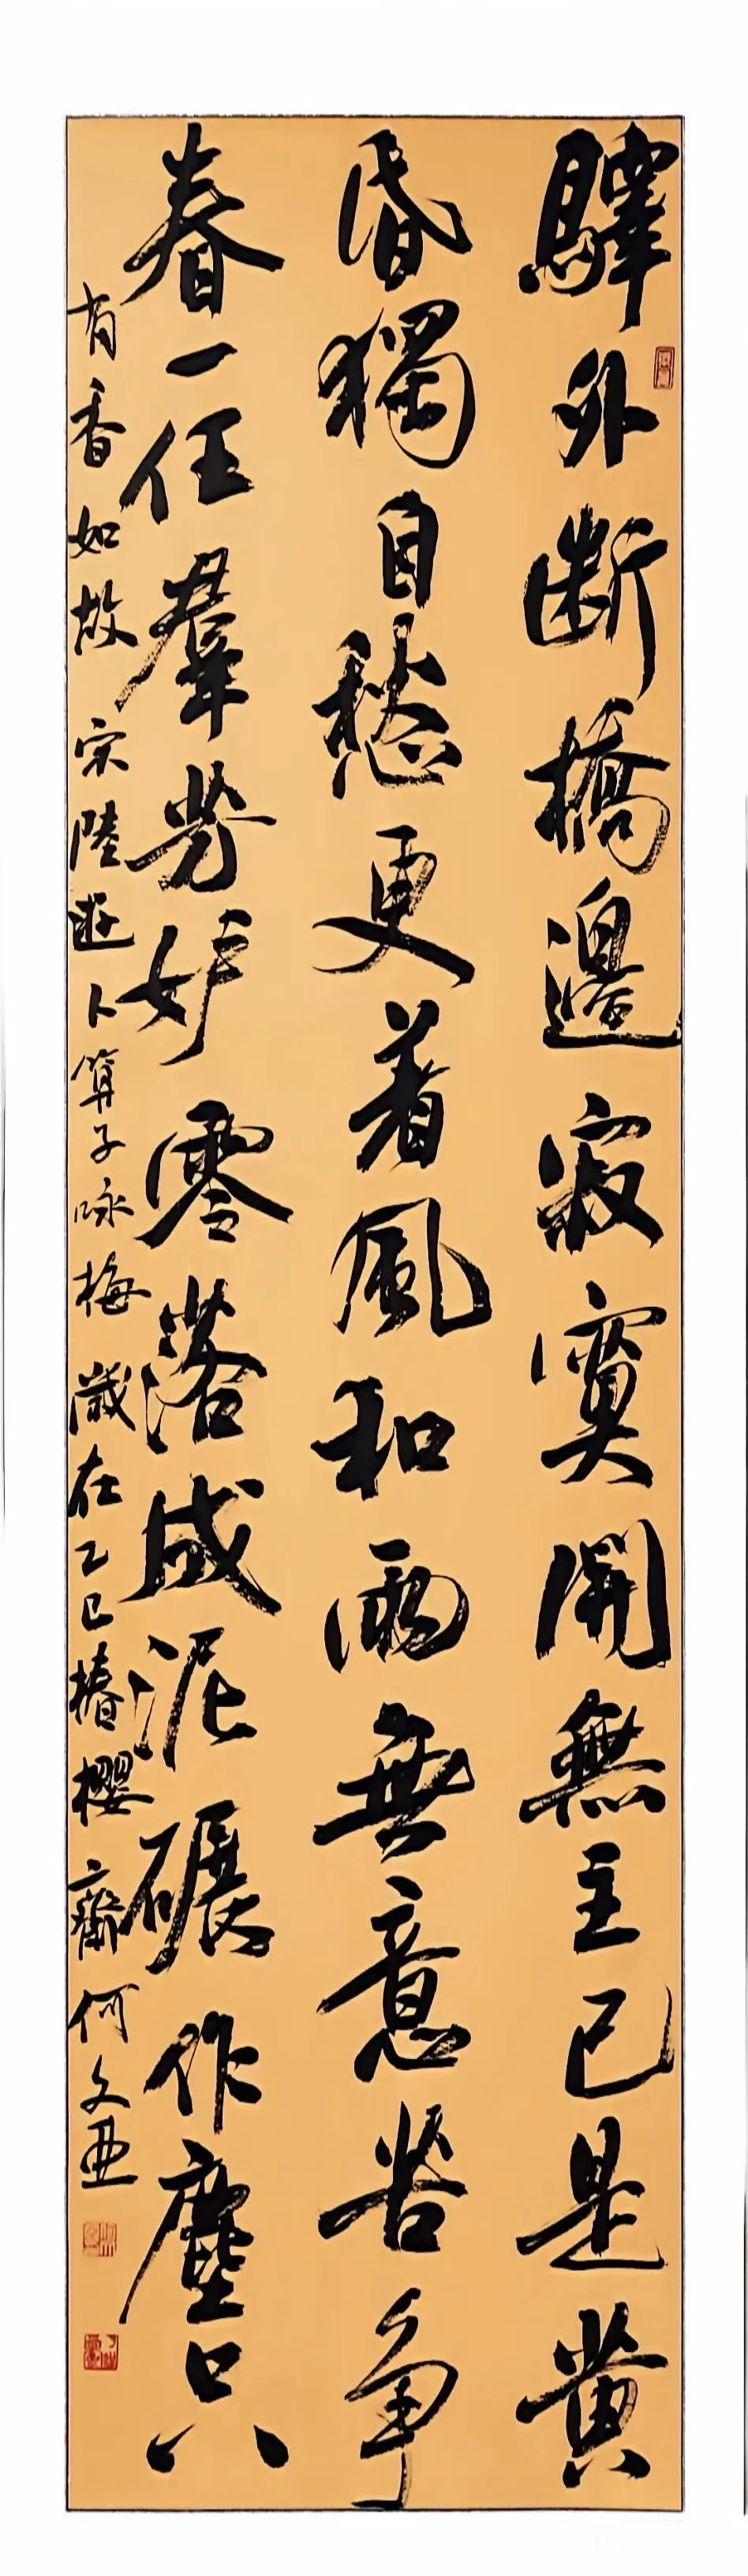 驛外斷橋邊寂寞開無主已是黄
昏獨自愁更着風和雨無意苦争
春一任羣芳妒零落成泥碾作塵只
有香如故 宋陸遊卜算子咏梅 歲在乙巳椿櫻齋何文亜